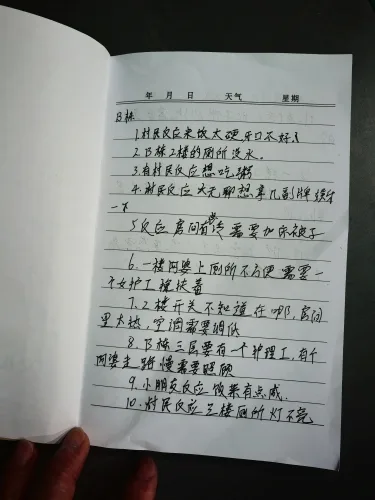 年 月 日 天气 星期
B栋
1.村民反应米饭太硬牙口不好
2.B栋2楼的厕所没水.
3.有村民反应想吃粥
4.村民反应太无聊想拿几副牌
一下
5反应房间有 需要加床被子
6.一楼阿婆上厕所不方便需要一
个女护工 扶着
7.2楼开关不知道在哪,房间
里太热,空调需要调低
8.B栋三层要有一个护理工,有个
阿婆走路慢需要照顾
9.小朋友反应饭菜有点咸.
10.村民反应三楼厕所灯不亮